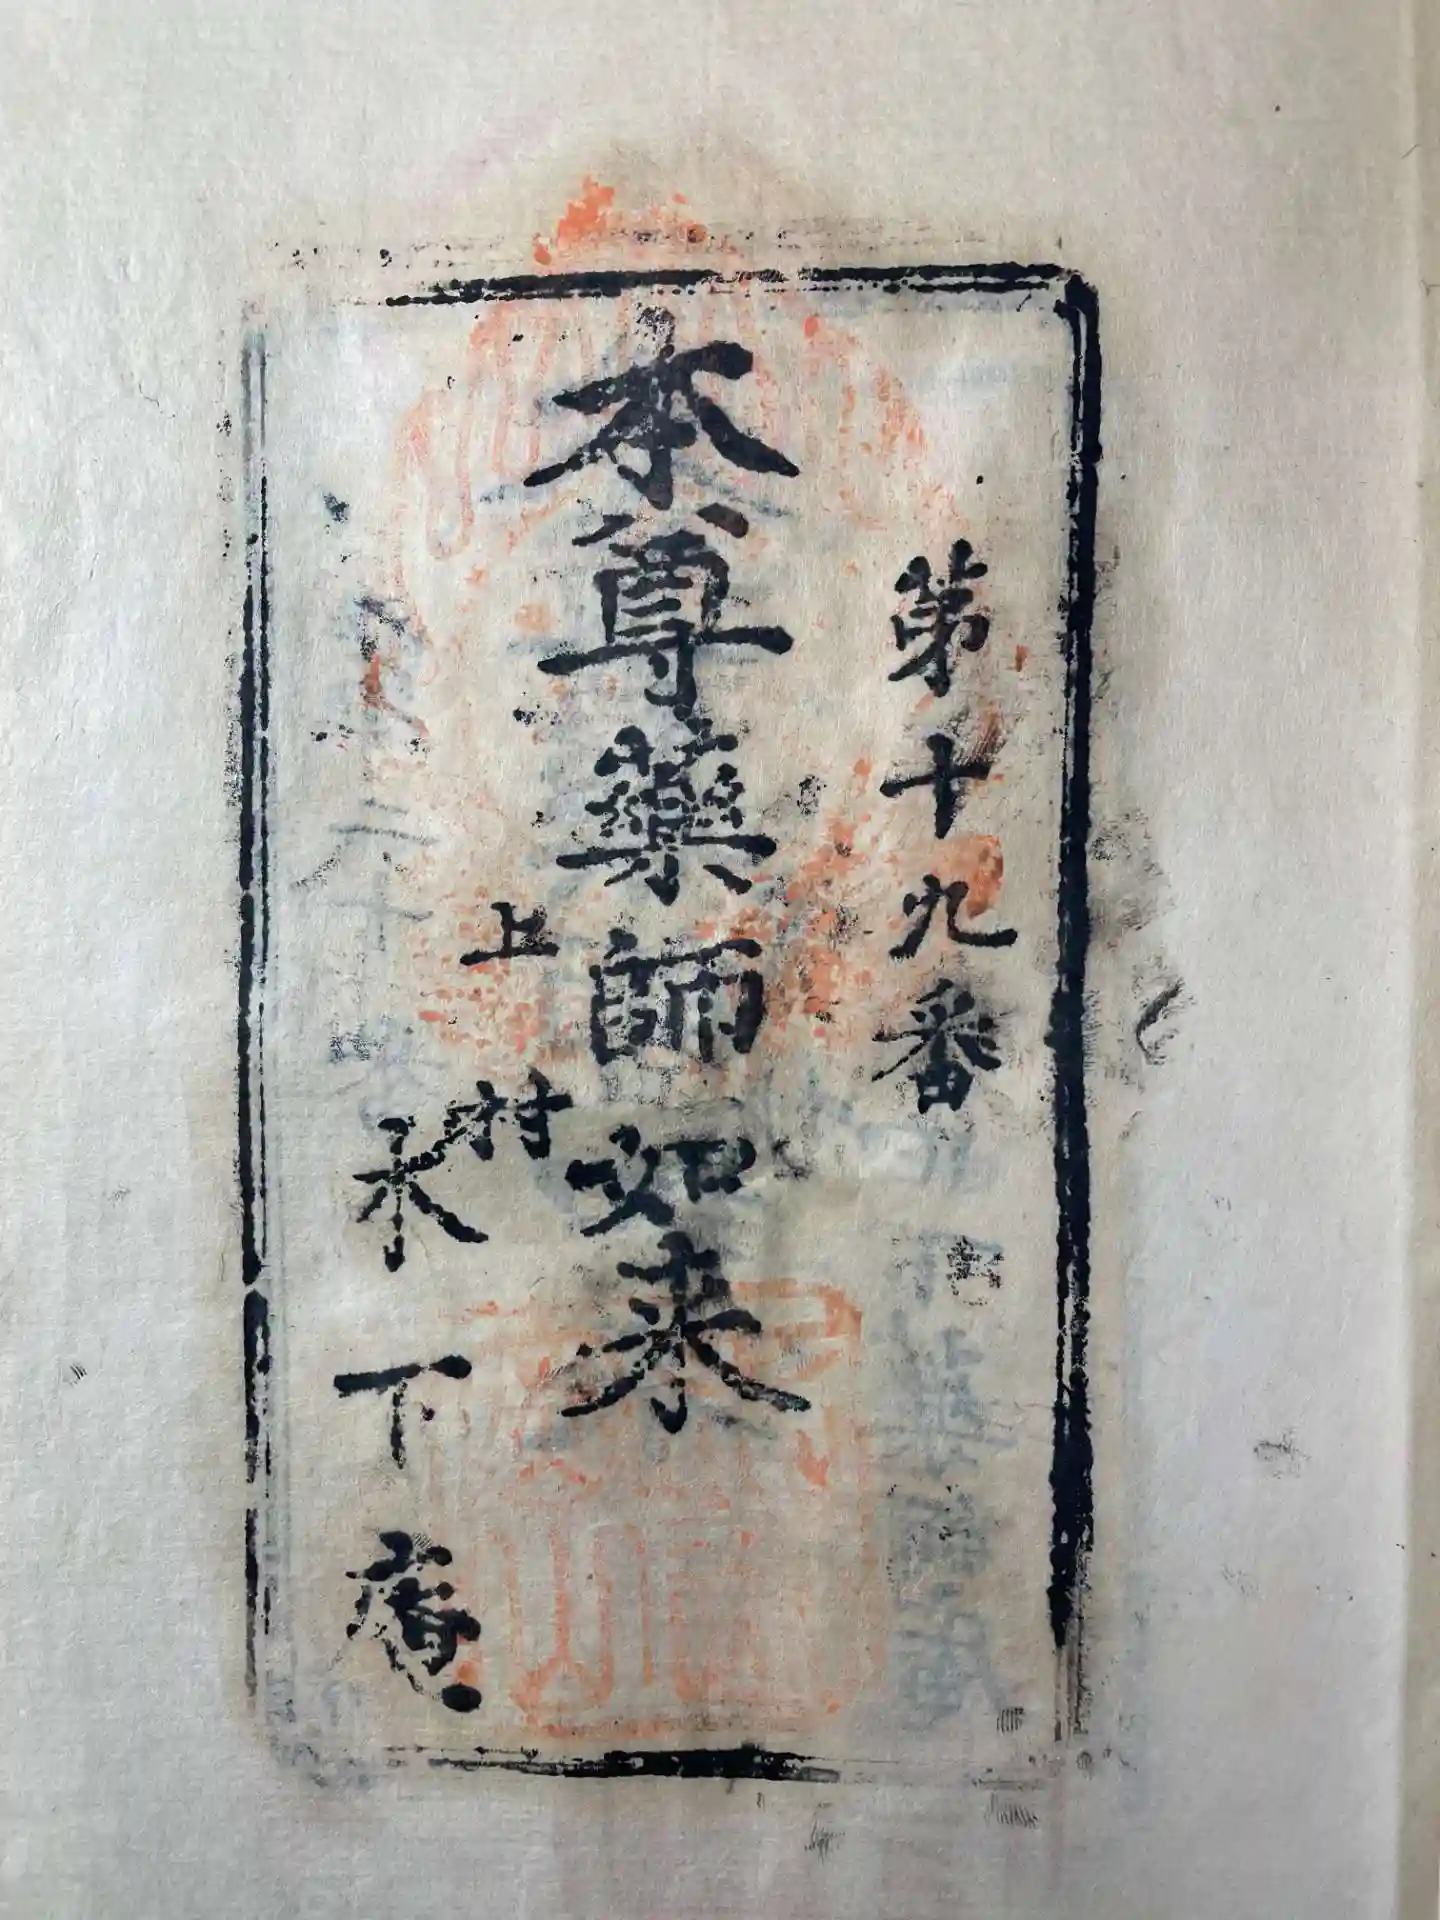 第十九番
本尊藥師如来
上村
木下庵